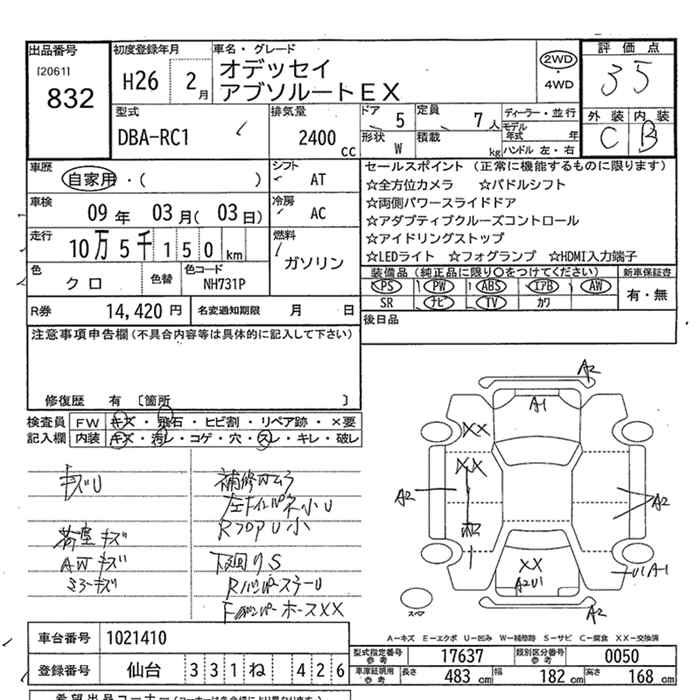 出品番号 初度登録年月 車名・グレード 評価点
[2061] 832 H26 2月 オデッセイ 2WD 35
アブソルートEX ・4WD
型式 排気量 ドア 5 定員 7人 ディーラー・並行 外装 内装
DBA-RC1 2400cc 形状 W 積載 kg モデル年式 年 C B
ハンドル 左・右
車歴 シフト セールスポイント (正常に機能するものに限ります)
自家用・( ) AT ☆全方位カメラ ☆パドルシフト
車検 冷房 ☆両側パワースライドドア
09年 03月(03日) AC ☆アダプティブクルーズコントロール
走行 燃料 ☆アイドリングストップ
10万5千150km ガソリン ☆LEDライト ☆フォグランプ ☆HDMI入力端子
色 色替 色コード 装備品(純正品に限り○をつけてください) 新車保証書
クロ NH731P PS PW ABS エアB AW 有・無
SR ナビ TV カワ
R券 14,420円 名変通知期限 月 日 後日品
注意事項申告欄(不具合内容等は具体的に記入して下さい)
修復歴 有 [箇所 ]
検査員 FW キズ・飛石・ヒビ割・リペア跡・×要
記入欄 内装 キズ・汚レ・コゲ・穴・スレ・キレ・破レ
キズU
荷室キズ
AWキズ
ミラーキズ
補修ムラ
RフロアU小
下回りS
A2
A1
XX
XX
A2
A2
XX
A2U1
U1A1
A2
A-キズ E-エクボ U-凹み W-補修跡 S-サビ C-腐食 XX-交換済
車台番号 1021410
型式指定番号 参考 17637 類別区分番号 参考 0050
登録番号 仙台 331ね 426
車庫証明用 参考 長さ 483cm 幅 182cm 高さ 168cm